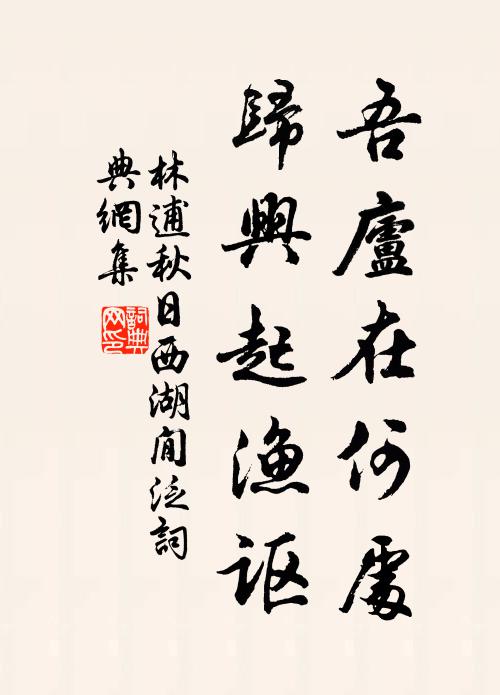 吾廬在何處
歸興起漁謳
林逋秋日西湖閒泛詞
典網集
詞典網印